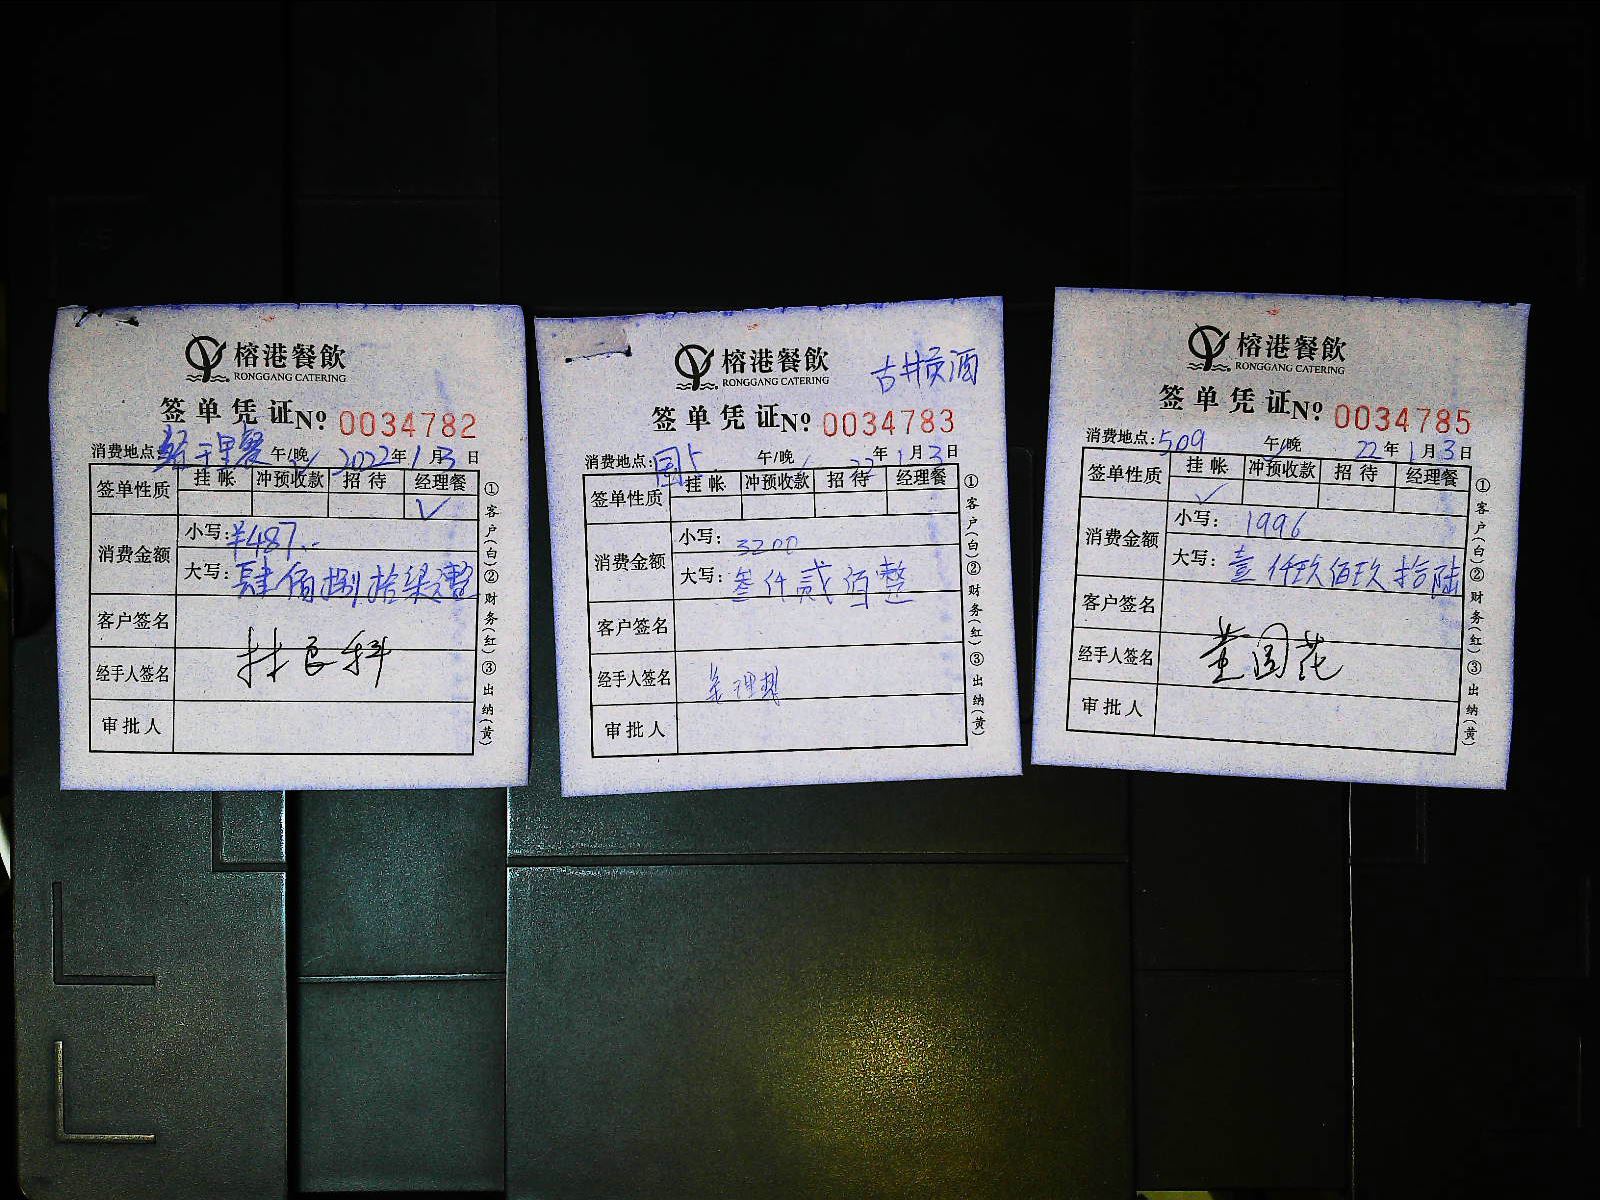 榕港餐飲
RONGGANG CATERING
签单凭证 Nº 0034782
消费地点: 经理餐 午/晚 2022年1月3日
签单性质 挂帐 冲预收款 招待 经理餐
✓
消费金额
小写: ¥487.-
大写: 肆佰捌拾柒元整
客户签名
经手人签名 林良科
审批人
①客户(白)②财务(红)③出纳(黄)
榕港餐飲
RONGGANG CATERING
古井贡酒
签单凭证 Nº 0034783
消费地点: 午/晚 22年1月3日
签单性质 挂帐 冲预收款 招待 经理餐
消费金额
小写: 3200
大写: 叁仟贰佰整
客户签名
经手人签名
审批人
①客户(白)②财务(红)③出纳(黄)
榕港餐飲
RONGGANG CATERING
签单凭证 Nº 0034785
消费地点: 509 午/晚 22年1月3日
签单性质 挂帐 冲预收款 招待 经理餐
✓
消费金额
小写: 1996
大写: 壹仟玖佰玖拾陆
客户签名
经手人签名 董国花
审批人
①客户(白)②财务(红)③出纳(黄)